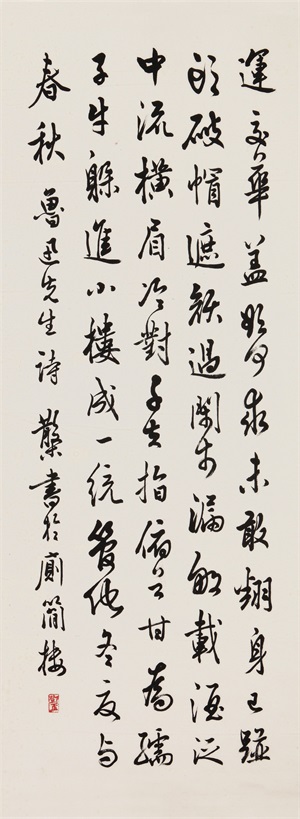 運交華蓋欲何求未敢翻身已踫
頭破帽遮顏過鬧市漏船載酒泛
中流橫眉冷對千夫指俯首甘為孺
子牛躲進小樓成一統管他冬夏與
春秋 魯迅先生詩 散木書於廁簡樓